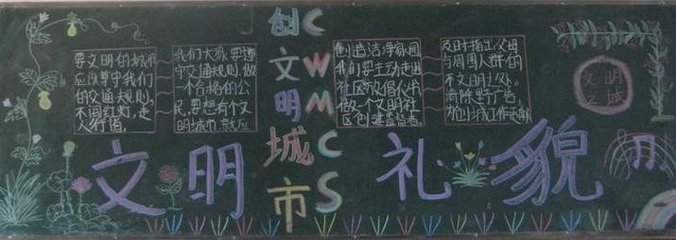 要文明的城市
应遵守我们
的交通规则,
不闯红灯,走
人行道,
我们大家要遵
守交通规则,做
一个合格的公
民,要想有个文
明城市,就应
创文明城市
CWMCS
创造洁净家园
我们要主动走进
社区
做一个文明社
区创建
及时指出父母
与周围人群的
不文明行为,
清除野广告,
为创城工作贡献
文明
之城
文明礼貌